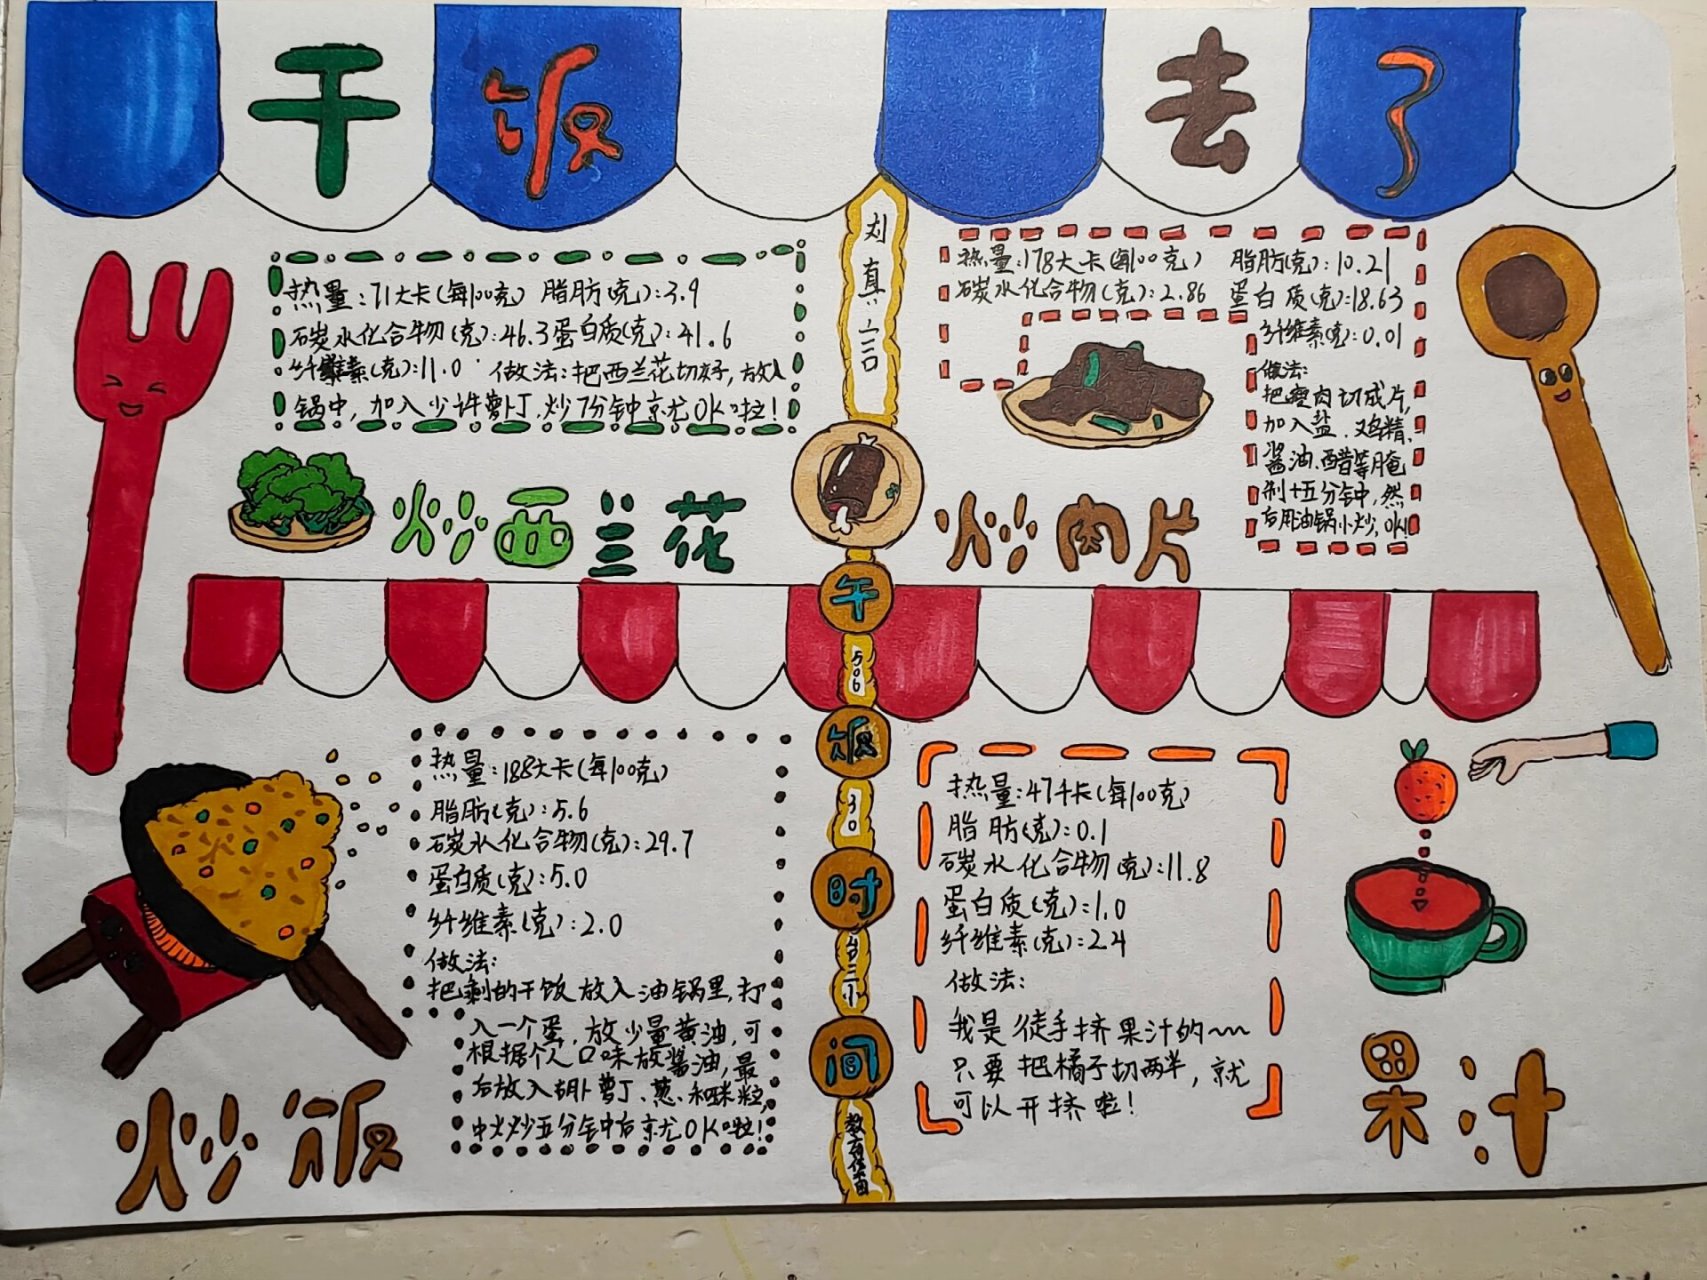 干饭去了
热量:71大卡(每100克) 脂肪(克):3.9
碳水化合物(克):46.3蛋白质(克):41.6
纤维素(克):11.0 做法:把西兰花切好,放入
锅中,加入少许萝丁,炒7分钟就OK啦!
炒西兰花
热量:178大卡(每100克) 脂肪(克):10.21
碳水化合物(克):2.86 蛋白质(克):18.63
纤维素(克):0.01
做法:
把瘦肉切成片,
加入盐、鸡精、
酱油、醋等腌
制十五分钟,然
后用油锅小炒,OK!
炒肉片
午饭时间
506
30
热量:188大卡(每100克)
脂肪(克):5.6
碳水化合物(克):29.7
蛋白质(克):5.0
纤维素(克):2.0
做法:
把剩的干饭放入油锅里,打
入一个蛋,放少量黄油,可
根据个人口味放酱油,最
后放入胡卜萝丁、葱、和味粒,
中火炒五分钟中后就OK啦!
炒饭
热量:47千卡(每100克)
脂肪(克):0.1
碳水化合物(克):11.8
蛋白质(克):1.0
纤维素(克):2.4
做法:
我是徒手挤果汁的~~
只要把橘子切两半,就
可以开挤啦!
果汁